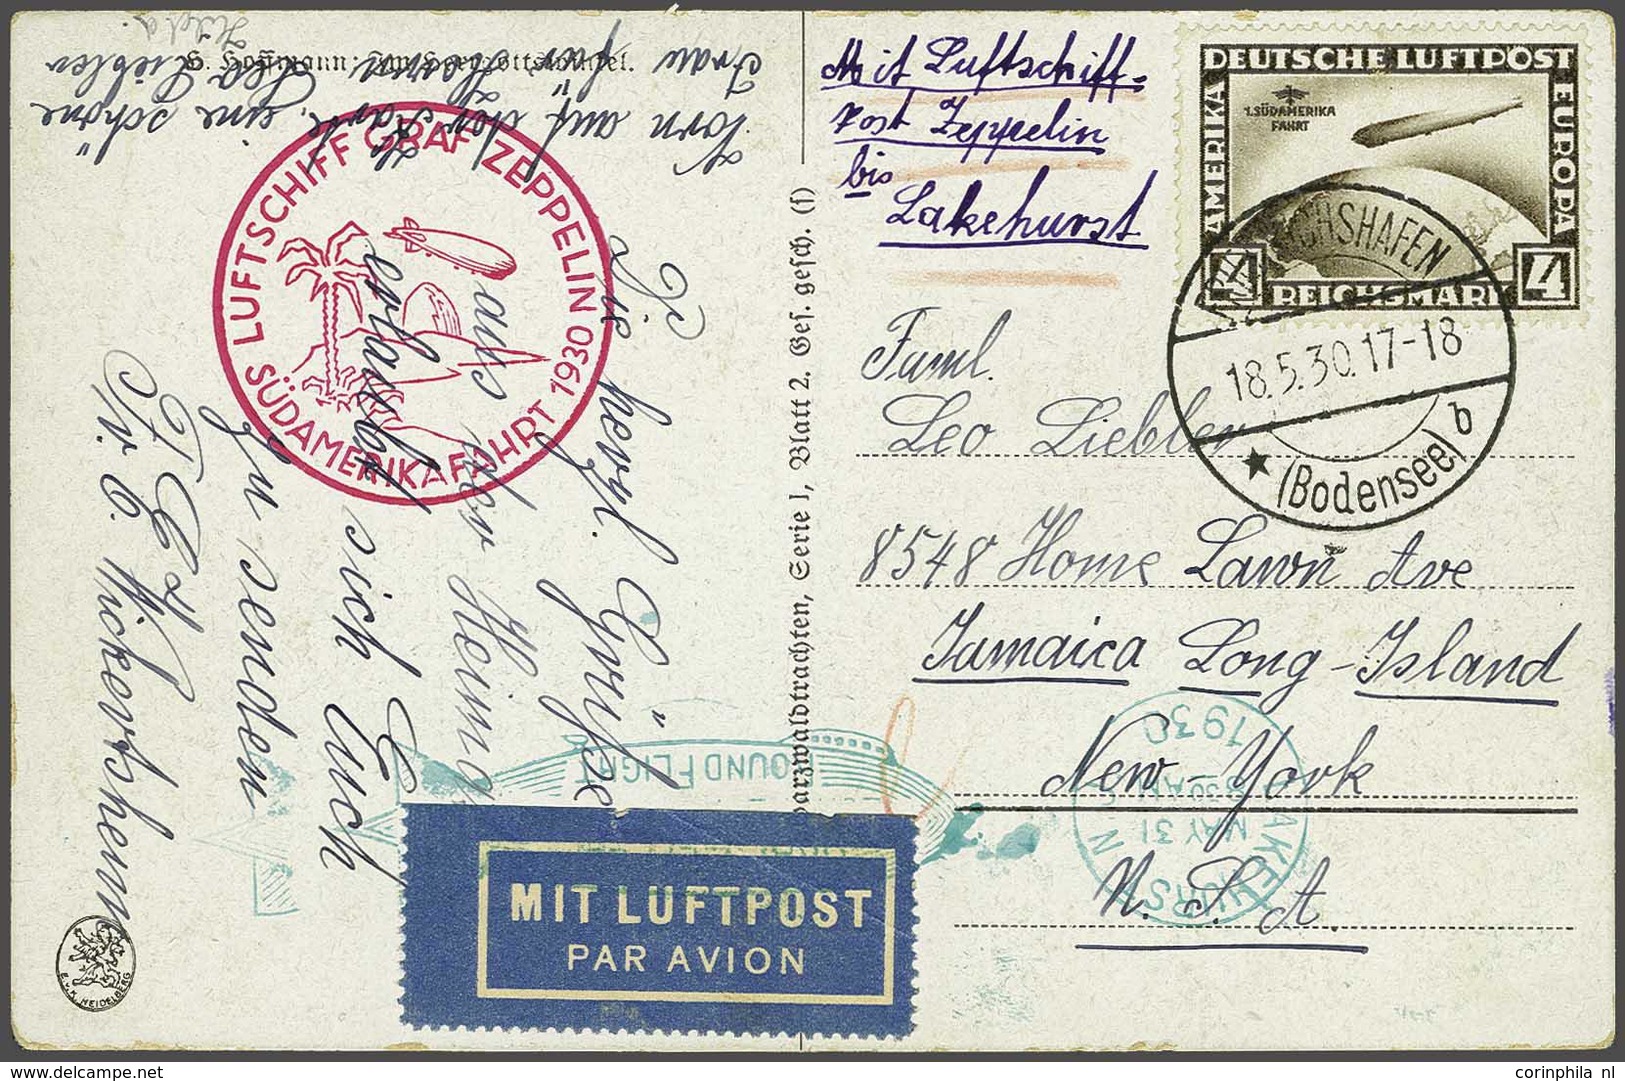 G. Hoffmann:
Mit Luftschiff-
Post Zeppelin
bis
Lakehurst
DEUTSCHE LUFTPOST
AMERIKA
EUROPA
1. SÜDAMERIKA
FAHRT
4
4
REICHSMARK
FRIEDRICHSHAFEN
18.5.30.17-18
(Bodensee) b
LUFTSCHIFF GRAF ZEPPELIN
SÜDAMERIKAFAHRT 1930
Faml.
Leo Liebler
8548 Home Lawn Ave
Jamaica Long-Island
New-York
N. S. A
Vorn auf der Karte, eine schöne
Frau für Herrn Leo Liebler
Die herzl. Grüße
aus der Heimat
erlaubt sich Euch
zu senden
Wickertsheim
Schwarzwaldtrachten, Serie I, Blatt 2. Ges. gesch. (f)
ROUND FLIGHT
LAKEHURST N
MAY 31
830 AM
1930
MIT LUFTPOST
PAR AVION
E.v.K. HEIDELBERG
corinphila nl